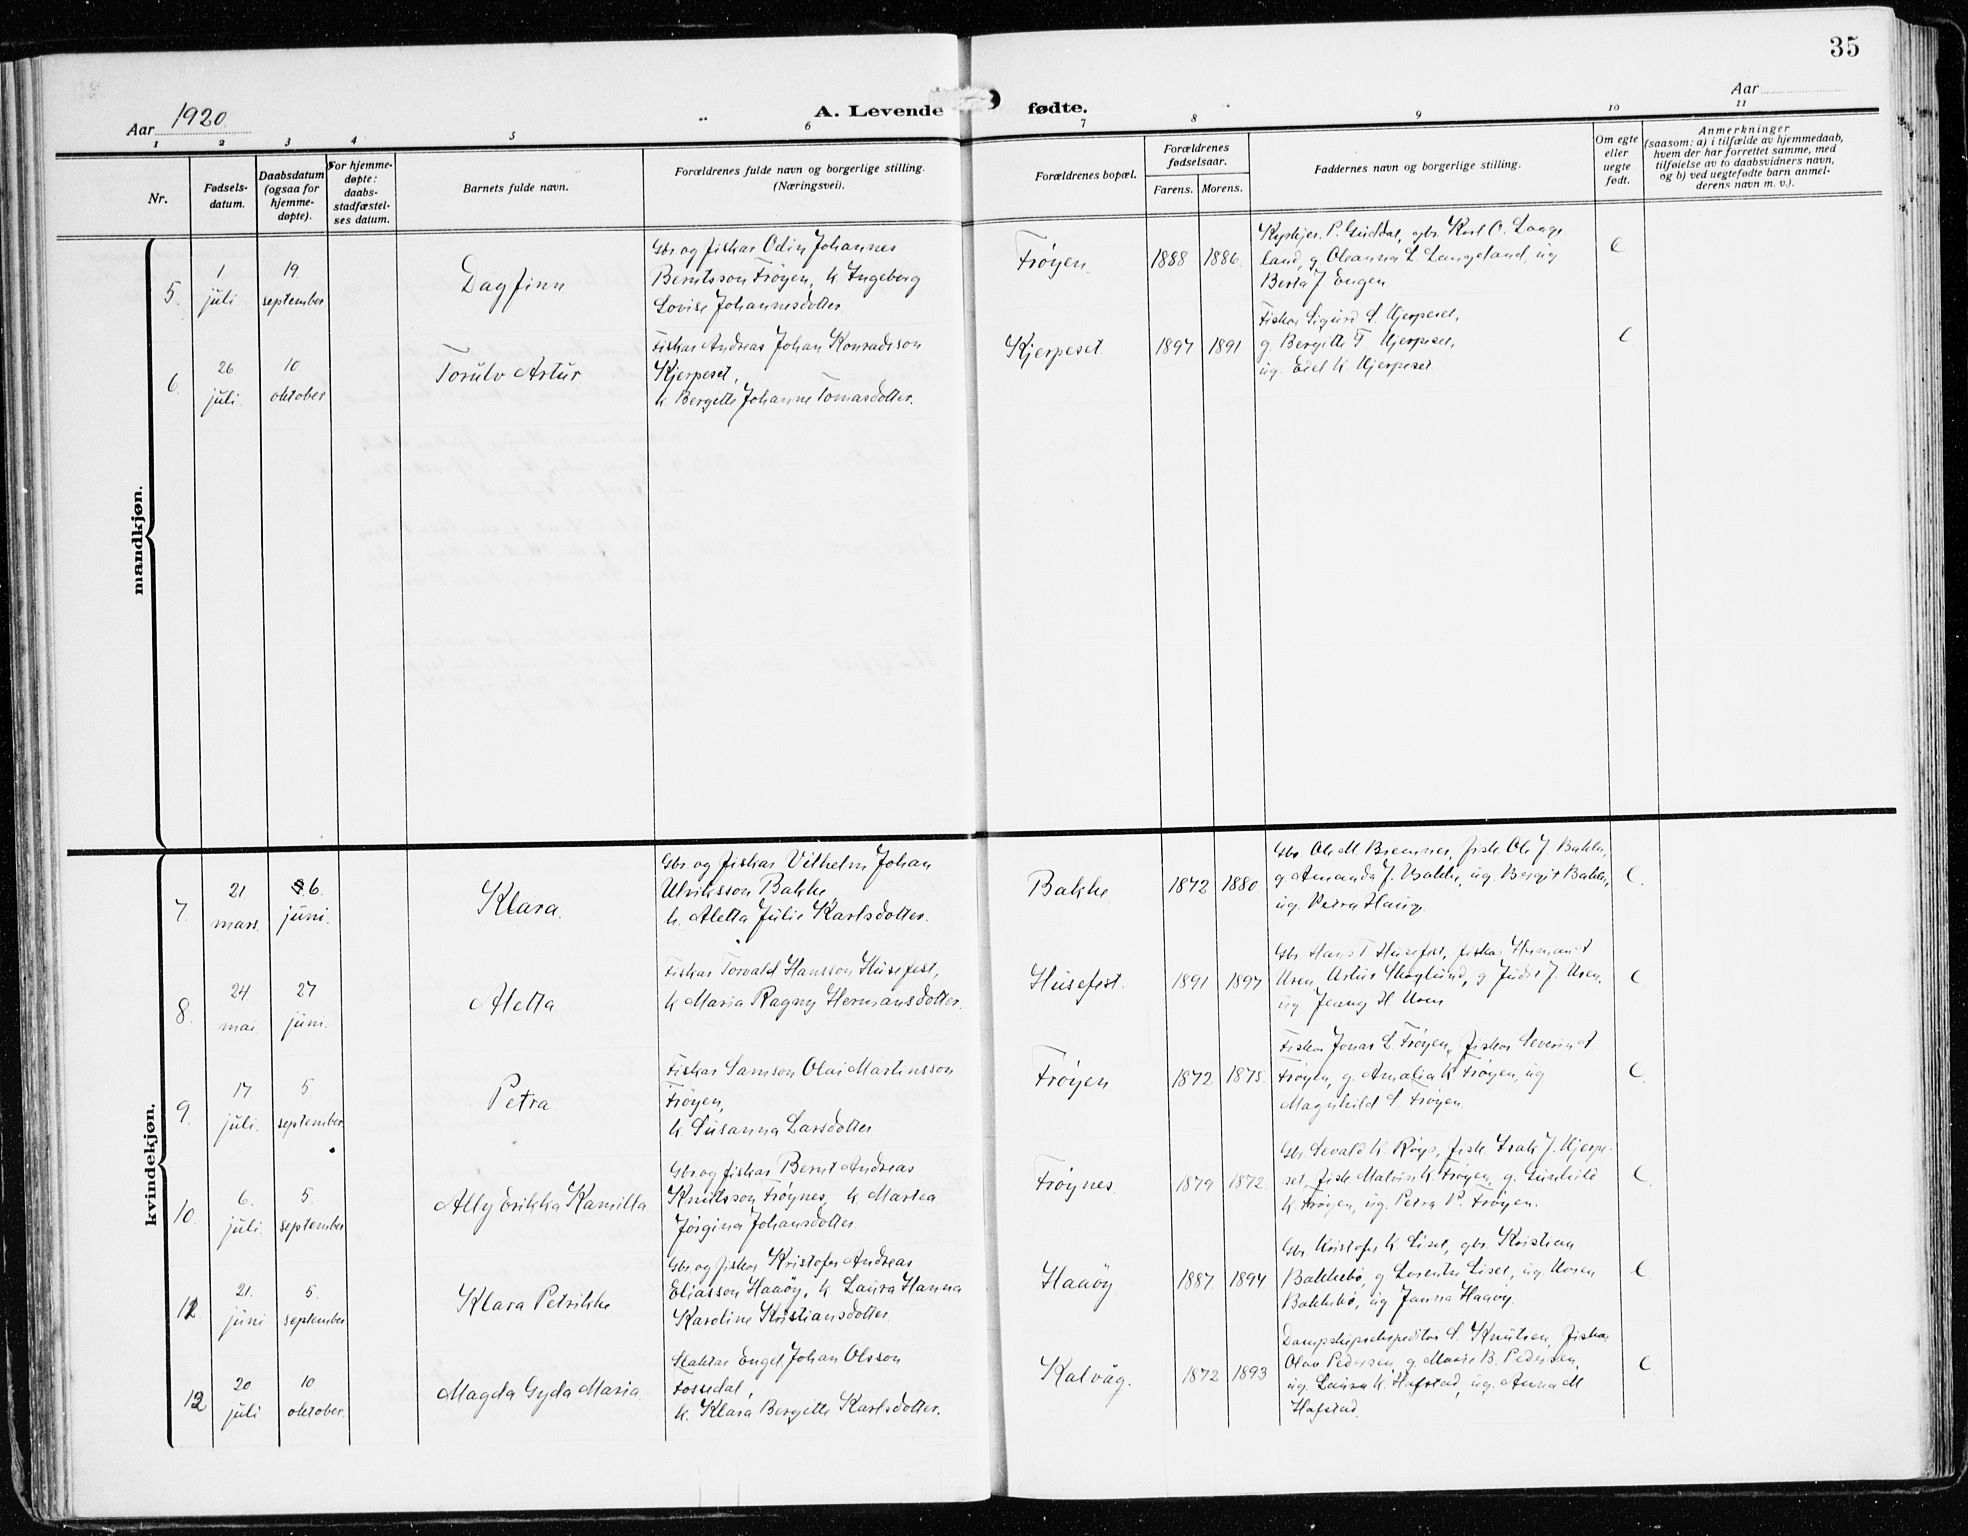 35
Aar 1920.
A. Levende fødte.
Aar
1 2 3 4 5 6 7 8 9 10 11
Nr.
Fødsels-
datum.
Daabsdatum
(ogsaa for
hjemme-
døpte).
For hjemme-
døpte:
daabs-
stadfæstel-
ses datum.
Barnets fulde navn.
Forældrenes fulde navn og borgerlige stilling.
(Næringsvei).
Forældrenes bopæl.
Forældrenes
fødselsaar.
Farens. Morens.
Faddernes navn og borgerlige stilling.
Om egte
eller
uegte
født.
Anmerkninger
(saasom: a) i tilfælde av hjemmedaab,
hvem der har forrettet samme, med
tilføielse av to daabsvidners navn,
og b) ved uegtefødte barn anmel-
derens navn m. v.).
mandkjøn.
5.
1.
juli.
19.
september
Dagfinn
Gbr. og fiskar Odin Johannes
Berntsson Frøyen, k. Ingeborg
Lovise Johannesdotter.
Frøyen.
1888 1886.
Kyrkjes. P. Guddal, gbr. Karl O. Lange
land, g. Oleanna L. Langeland, ug
Berta J Engen
e
6.
26
juli.
10.
oktober
Torulv Artur
Fiskar Andreas Johan Konradsson
Kjerpeset,
k. Bergette Johanne Tomasdotter.
Kjerpeset
1897 1891
Fiskar Sigurd S. Kjerpeset,
g. Bergitte T Kjerpeset,
ug. Edel K. Kjerpeset
e
kvindekjøn.
7.
21
mars.
6.
juni.
Klara.
Gbr. og fiskar Vilhelm Johan
Ulriksson Bakke,
k. Aletta Julie Karlsdotter.
Bakke.
1872 1880
Gbr. Ole M. Bremnes, fisk. Ole J. Bakke,
g. Amanda J. Bakke, ug. Bergit Bakke,
ug. Petra Haug.
e.
8.
24
mai.
27
juni.
Aletta
Fiskar Torvald Hansson Husefest,
k. Maria Ragny Hermansdotter.
Husefest.
1891 1897
Gbr. Hans T Husefest, fiskar Herman A
Uren, Artur Skoglund, g. Judit J. Uren,
ug. Jenny H Uren
e
9.
17
juli.
5
september.
Petra
Fiskar Samson Olai Martinsson
Frøyen,
k. Susanna Larsdotter
Frøyen
1872 1875.
Fiskar Jonas L. Frøyen, fiskar Severin A
Frøyen, g. Amalia K. Frøyen, ug
Magnhild S. Frøyen.
e.
10.
6.
juli.
5.
september
Ally Erikka Kamilla
Gbr. og fiskar Bernt Andreas
Knutsson Frøynes, k. Martea
Jørgina Johansdotter
Frøynes.
1879 1872.
Gbr. Sevald K. Røys, fisk. Isak J. Kjerpe-
set, fisk. Malvin K. Frøyen, g. Gunhild
K. Frøyen, ug. Petra P. Frøyen.
e.
11.
21.
juni
5.
september
Klara Petrikke
Gbr. og fiskar Kristofer Andreas
Eliasson Haaøy, k. Laura Hanna
Karoline Kristiansdotter.
Haaøy
1887. 1894
Gbr. Kristofer K. Liset, gbr. Kristian
Bakkebø, g. Lorentse Liset, ug. Karen
Bakkebø, ug Janna Haaøy.
e
12
20
juli
10.
oktober.
Magda Gyda Maria
Slaktar Engel Johan Olsson
Fossedal,
k. Klara Bergette Karlsdotter.
Kalvåg.
1872 1893
Dampskipsekspeditør S. Knutsen, fiskar
Olav Pedersen, g. Marie B. Pedersen,
ug. Laura K. Hafstad, ug. Anna M
Hafstad.
e